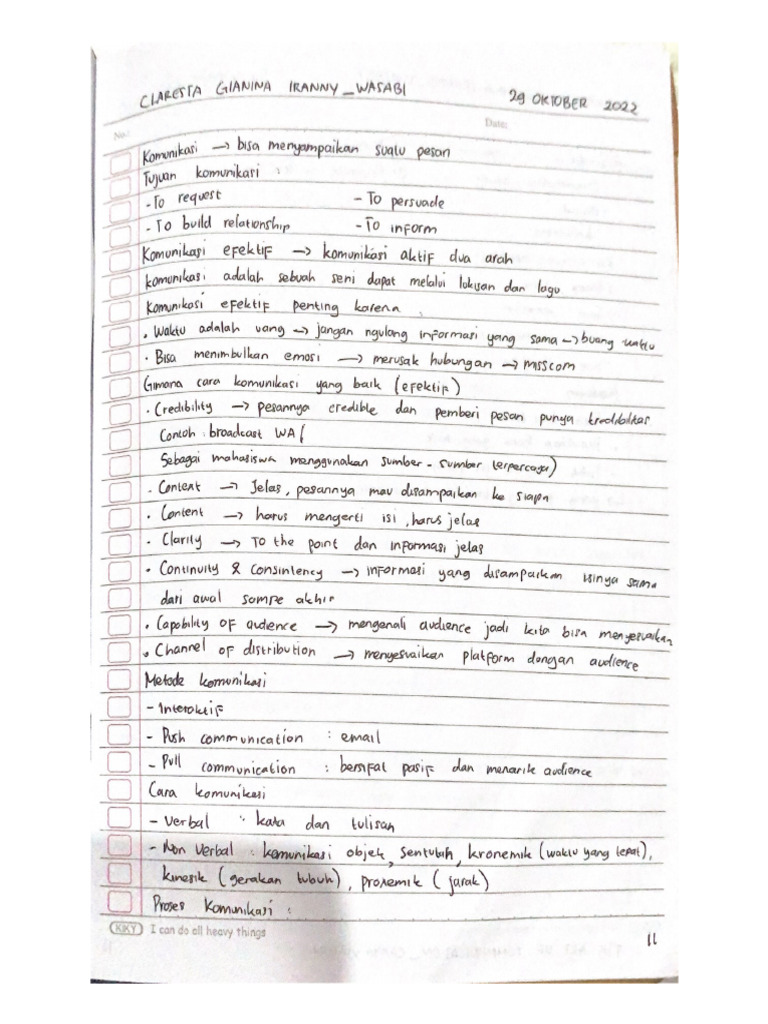 CLARESTA GIANINA IRANNY_WASABI
29 OKTOBER 2022
No.:
Date:
Komunikasi → bisa menyampaikan suatu pesan
Tujuan komunikasi :
- To request - To persuade
- To build relationship - To inform
Komunikasi efektif → komunikasi aktif dua arah
komunikasi adalah sebuah seni dapat melalui lukisan dan lagu
Komunikasi efektif penting karena :
• Waktu adalah uang → jangan ngulang informasi yang sama → buang waktu
• Bisa menimbulkan emosi → merusak hubungan → msscom
Gimana cara komunikasi yang baik (efektif)
• Credibility → pesannya credible dan pemberi pesan punya kredibilitas
Contoh : broadcast WA (
Sebagai mahasiswa menggunakan sumber-sumber terpercaya)
• Context → Jelas, pesannya mau disampaikan ke siapa
• Content → harus mengerti isi, harus jelas
• Clarity → TO the point dan informasi jelas
• Continuity & Consintency → informasi yang disampaikan isinya sama
dari awal sampe akhir
• Capability OF audience → mengenali audience jadi kita bisa menyesuaikan
• Channel of distribution → menyesuaikan platform dengan audience
Metode komunikasi
- Interaktif
- Push communication : email
- Pull communication : bersifat pasif dan menarik audience
Cara komunikasi
- Verbal : kata dan tulisan
- Non Verbal : komunikasi objek, sentuhah, kronemik (waktu yang tepat),
kinesik (gerakan tubuh), proxemik (jarak)
Proses komunikasi :
KIKY I can do all heavy things
11